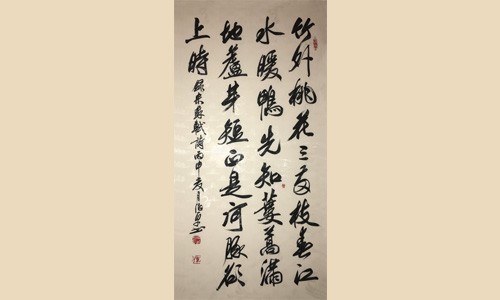 竹外桃花三两枝春江
水暖鸭先知蒌蒿满
地芦芽短正是河豚欲
上时 录宋苏轼诗丙申夏月